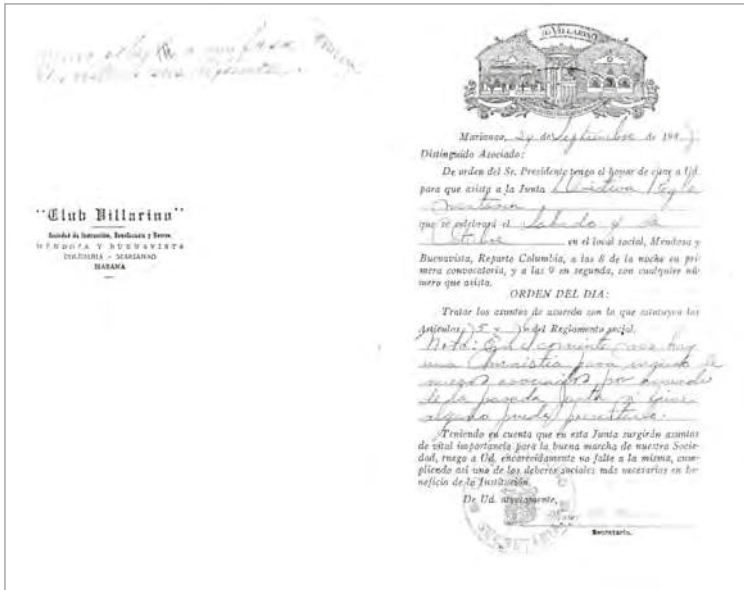 "Club Villarino"
Sociedad de Instrucción, Beneficencia y Recreo
MENDOZA Y BUENAVISTA
COLUMBIA - MARIANAO
HABANA
VILLARINO
Marianao, 24 de Septiembre de 194
Distinguido Asociado:
De orden del Sr. Presidente tengo el honor de citar a Ud.
para que asista a la Junta Directiva Regla
mentaria
que se celebrará el Sabado 4 de
Octubre en el local social, Mendoza y
Buenavista, Reparto Columbia, a las 8 de la noche en pri-
mera convocatoria, y a las 9 en segunda, con cualquier nú-
mero que asista.
ORDEN DEL DIA:
Tratar los asuntos de acuerdo con lo que estatuyen los
Artículos 75 y del Reglamento social.
Nota: En el corriente mes hay
una Amnistia para ingreso de
nuevos asociados por acuerdo
de la pasada Junta si tiene
alguno puede presentarlo.
Teniendo en cuenta que en esta Junta surgirán asuntos
de vital importancia para la buena marcha de nuestra Socie-
dad, ruego a Ud. encarecidamente no falte a la misma, cum-
pliendo así uno de los deberes sociales más necesarios en be-
neficio de la Institución.
De Ud. atentamente,
Secretario.